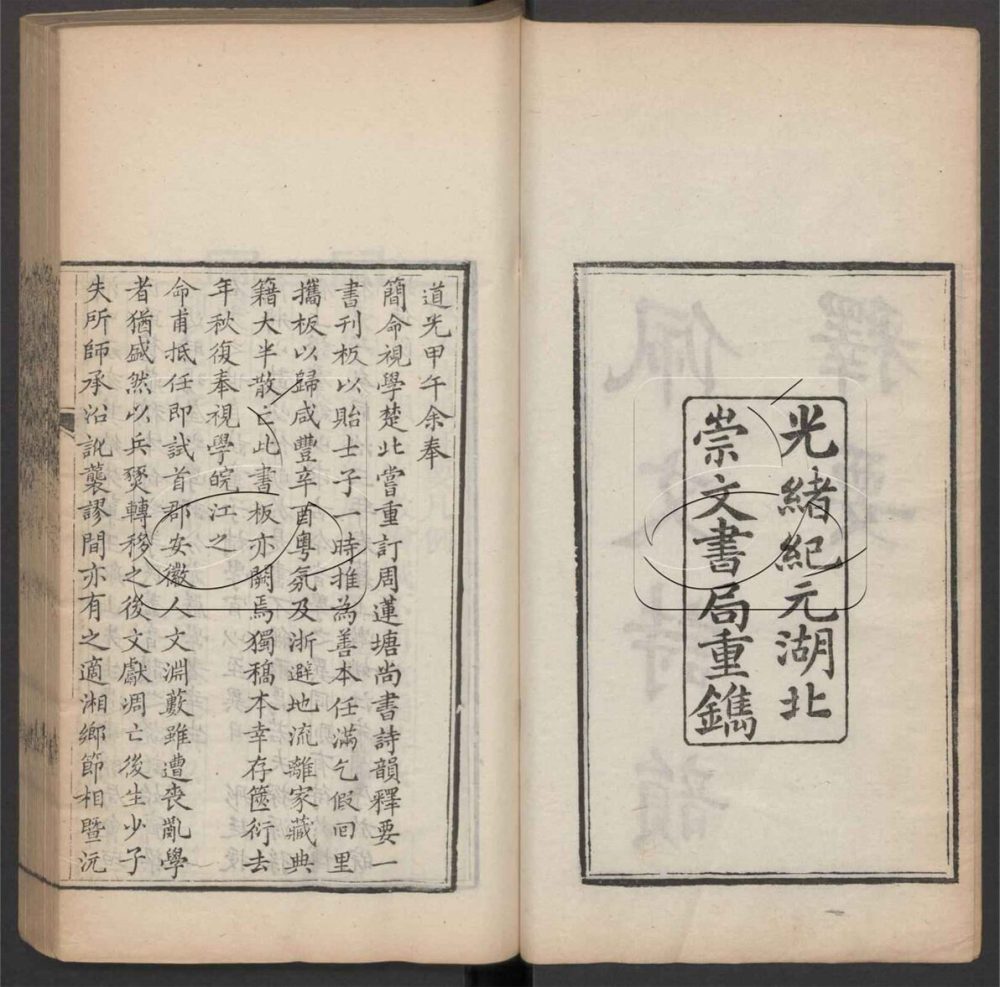 光緒紀元湖北
崇文書局重鐫
道光甲午余奉
簡命視學楚北嘗重訂周蓮塘尚書詩韻釋要一
書刊板以貽士子一時推為善本任滿乞假囘里
攜板以歸咸豐辛酉粵氛及浙避地流離家藏典
籍大半散亡此書板亦闕焉獨稿本幸存篋衍去
年秋復奉視學皖江之
命甫抵任即試首郡安徽人文淵藪雖遭喪亂學
者猶盛然以兵燹轉移之後文獻凋亡後生少子
失所師承沿訛襲謬間亦有之適湘鄉節相暨沅